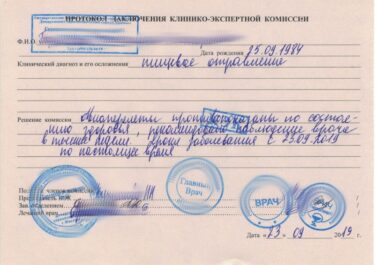 ПРОТОКОЛ ЗАКЛЮЧЕНИЯ КЛИНИКО-ЭКСПЕРТНОЙ КОМИССИИ
Ф.И.О.
Дата рождения 25.09.1984
Клинический диагноз и его осложнения пищевое отравление
Решение комиссии Авиаперелеты противопоказаны по состоя-
нию здоровья, рекомендовано наблюдение врача
в течение недели. Сроки заболевания с 23.09.2019
по настоящее время
Подписи членов комиссии
Председатель КЭК
Зав. отделением
Лечащий врач
Главный
Врач
ВРАЧ
Дата «23» 09 2019 г.